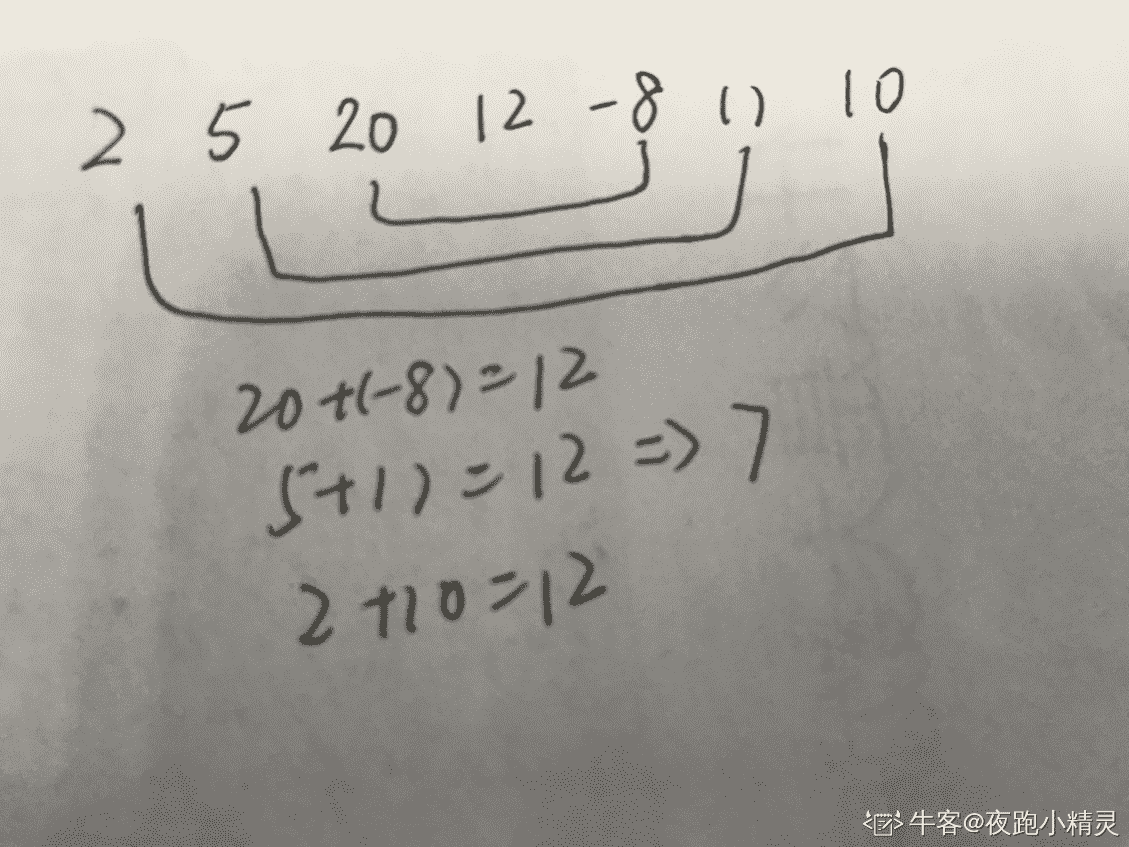 2 5 20 12 -8 () 10
20+(-8)=12
5+()=12 => 7
2+10=12
牛客@夜跑小精灵